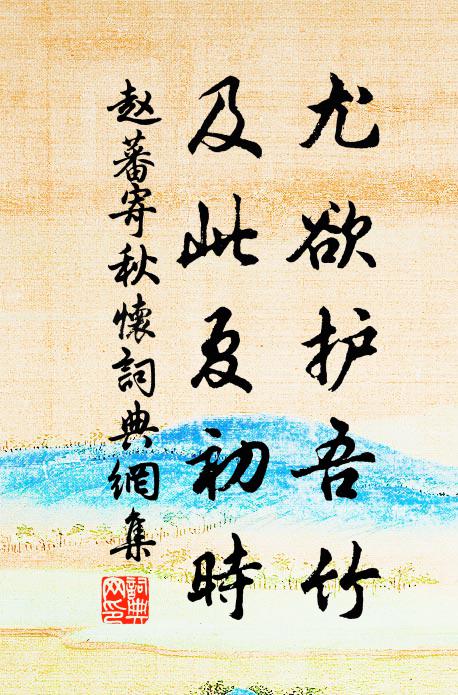 尤欲护吾竹
及此夏初時
赵蕃寄秋懷詞典網集
詞典
网印